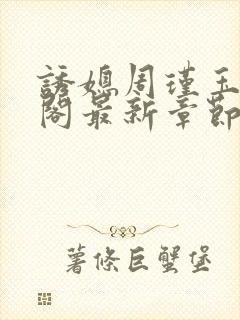 誘媳周瑾玉
閣最新章節
薯條巨蟹堡